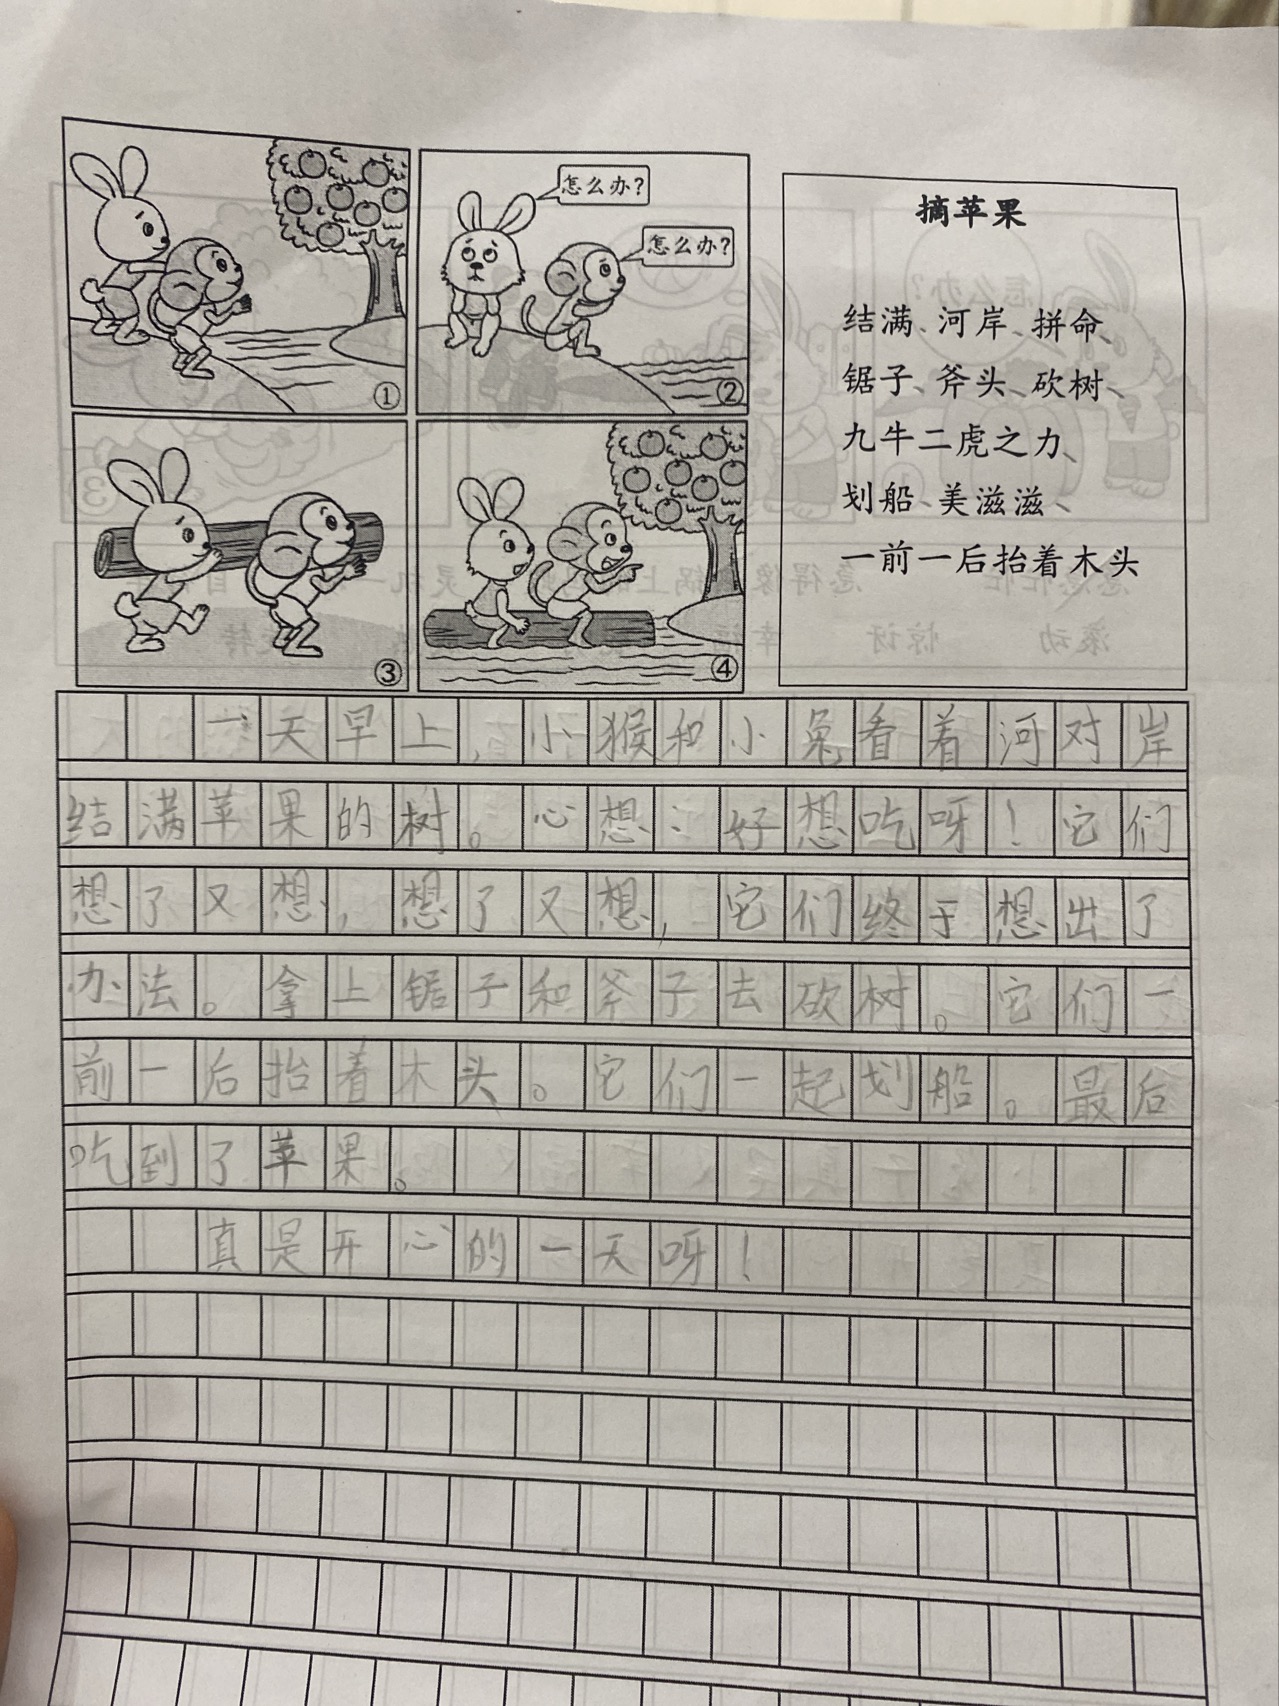 怎么办？
怎么办？
①
②
③
④
摘苹果
结满、河岸、拼命、
锯子、斧头、砍树、
九牛二虎之力、
划船、美滋滋、
一前一后抬着木头
一天早上，小猴和小兔看着河对岸
结满苹果的树。心想：好想吃呀！它们
想了又想，想了又想，它们终于想出了
办法。拿上锯子和斧子去砍树。它们一
前一后抬着木头。它们一起划船。最后
吃到了苹果。
真是开心的一天呀！